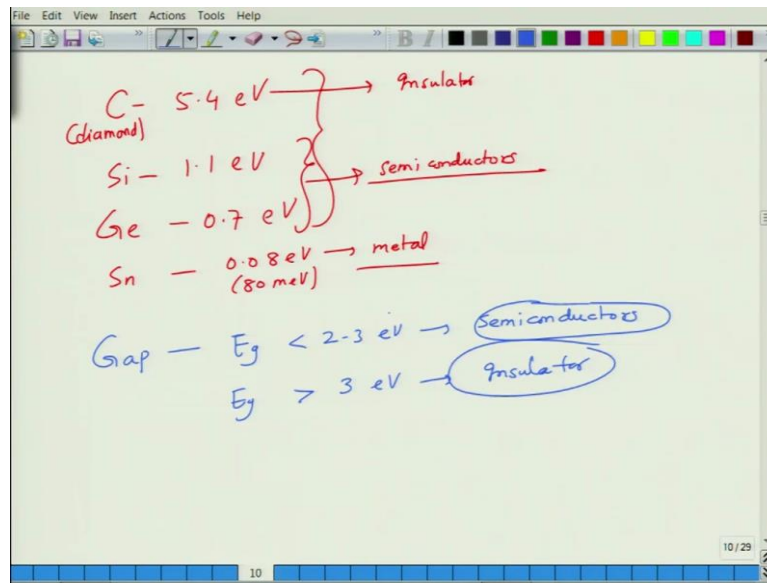 File Edit View Insert Actions Tools Help
B I
C - 5.4 eV → Insulator
(diamond)
Si - 1.1 eV
→ semiconductors
Ge - 0.7 eV
Sn - 0.08 eV → metal
(80 meV)
Gap - Eg < 2-3 eV → Semiconductors
Eg > 3 eV → Insulator
10/29
10